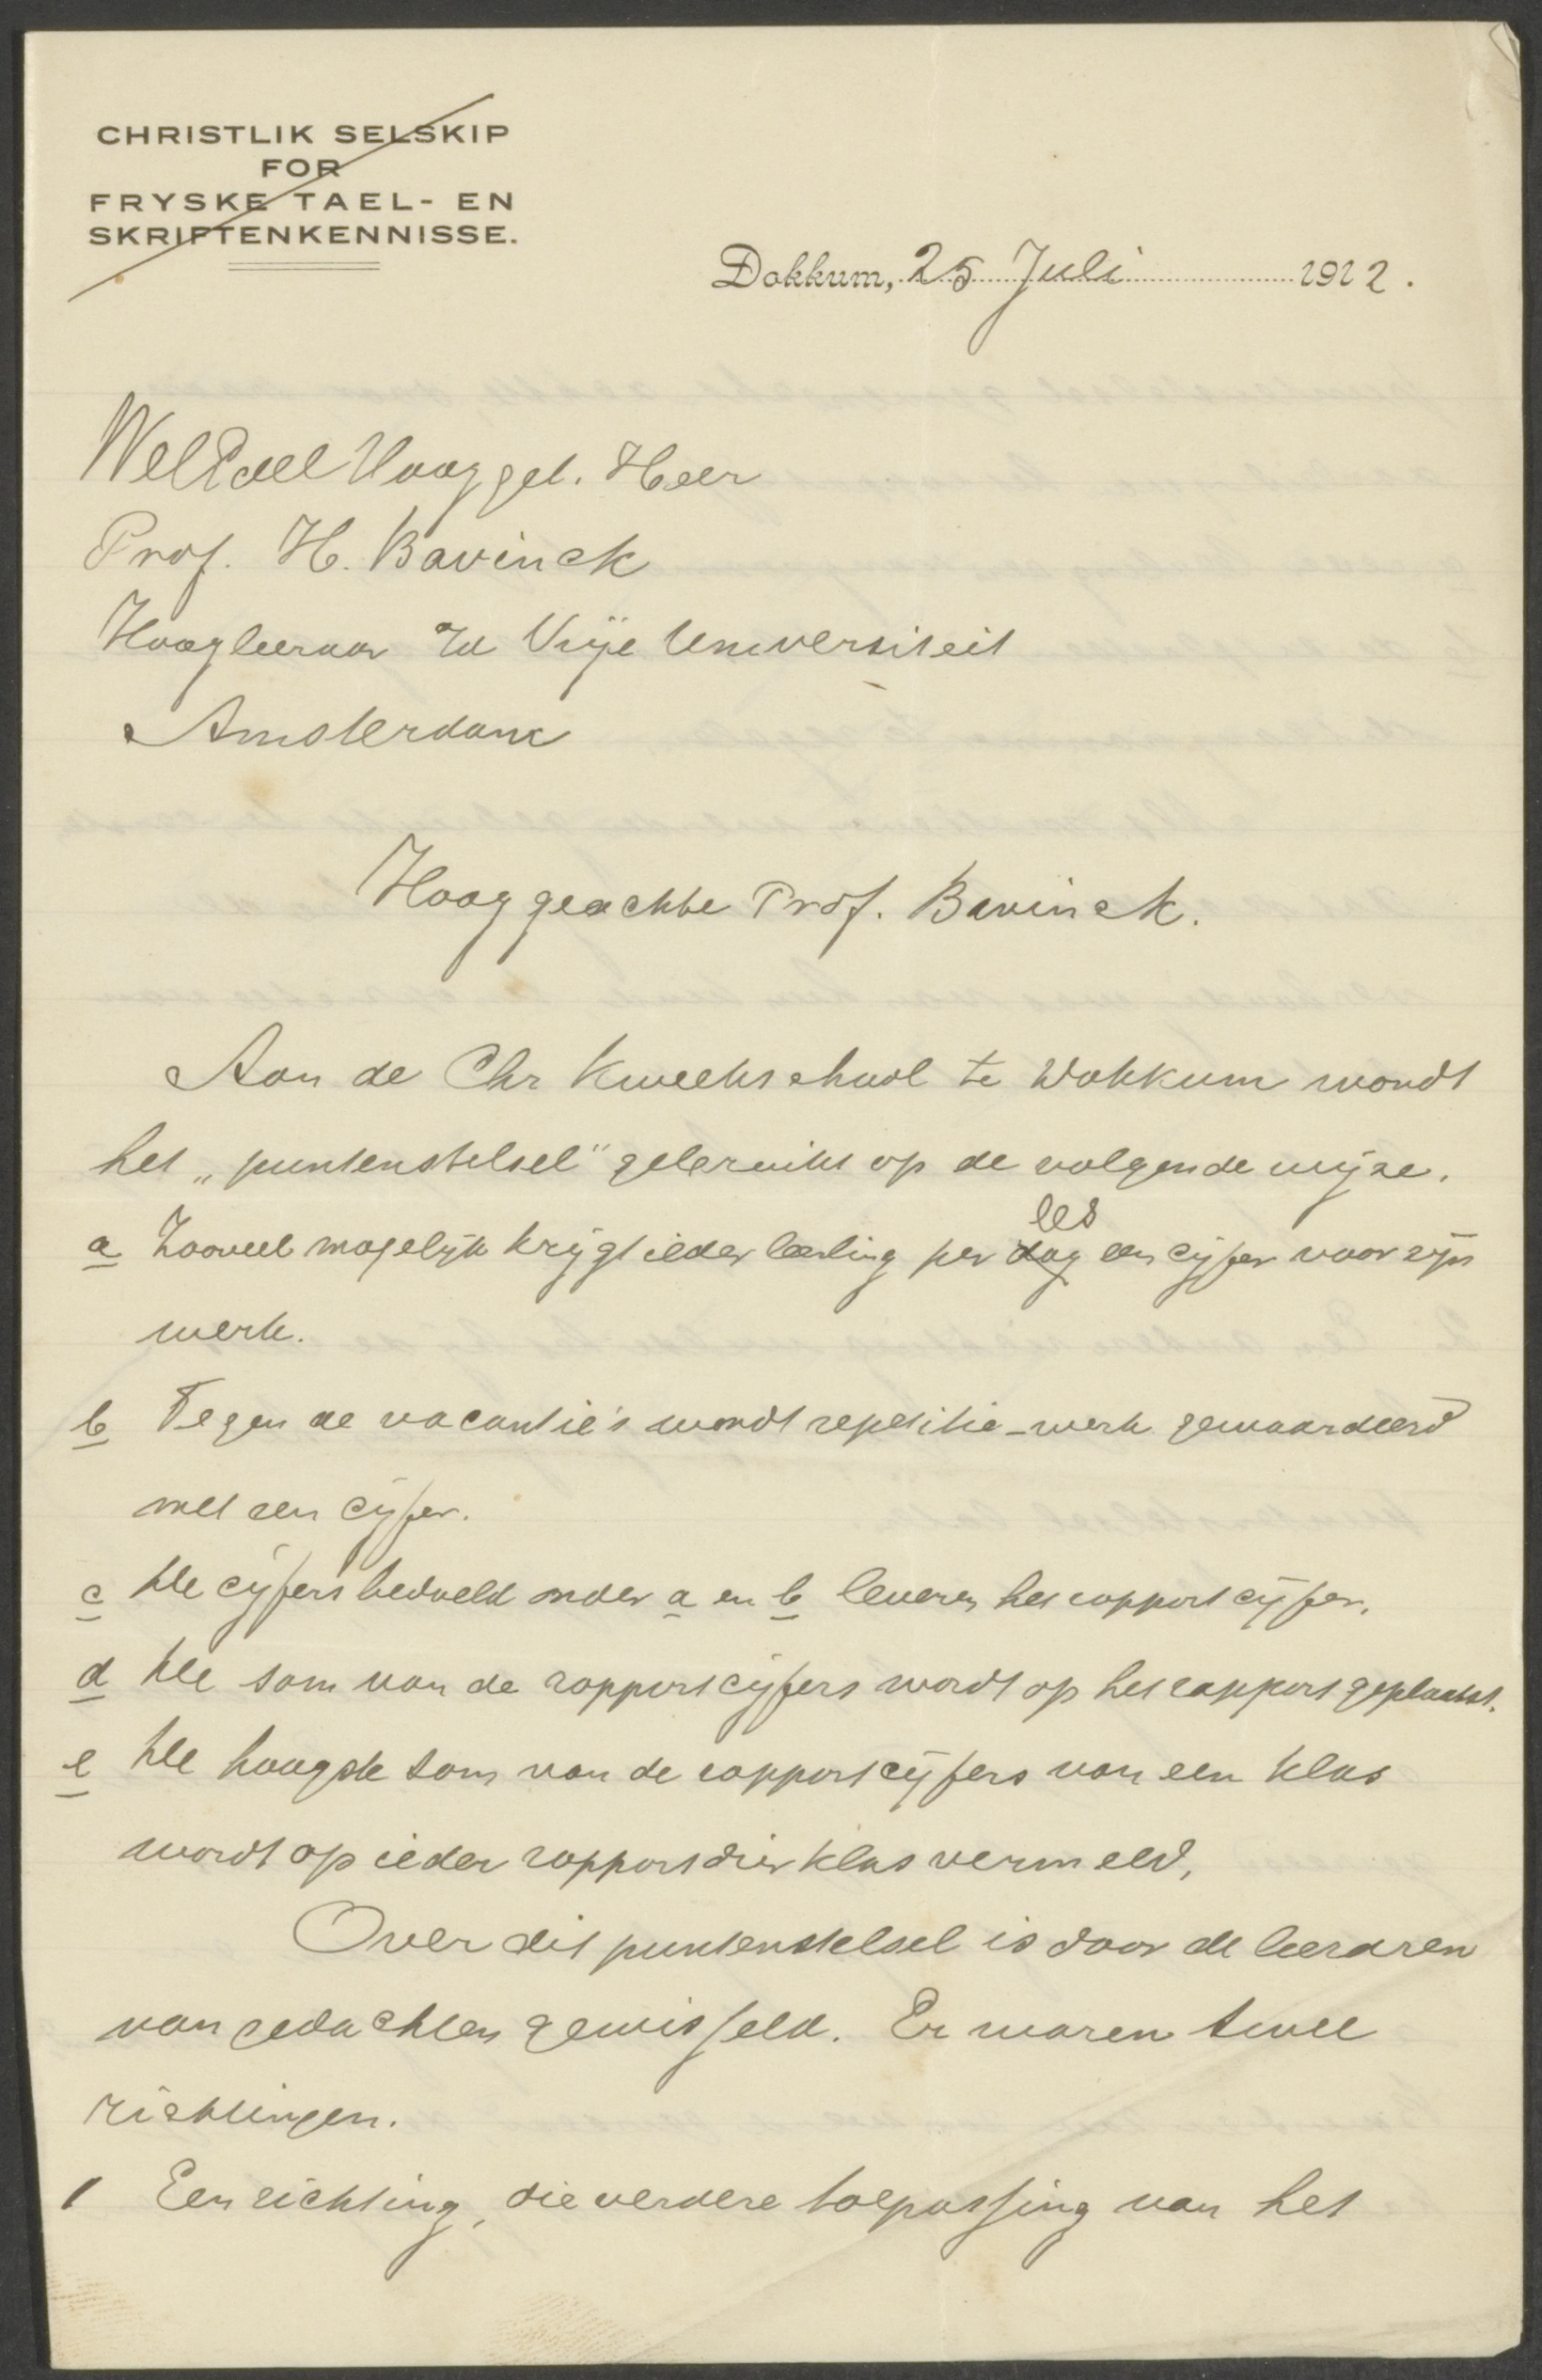 CHRISTLIK SELSKIP
FOR
FRYSKE TAEL- EN
SKRIFTENKENNISSE.
Dokkum, 25 Juli 1912.
WelEdel Hooggel. Heer
Prof. H. Bavinck
Hoogleeraar Vrije Universiteit
Amsterdam
Hooggeachte Prof. Bavinck.
Aan de Chr Kweekschool te Dokkum wordt
het „puntenstelsel" gebruikt op de volgende wijze.
a Zooveel mogelijk krijgt ieder leerling per dag les een cijfer voor zijn
werk.
b Tegen de vacantie's wordt repetitie-werk gewaardeerd
met een cijfer.
c De cijfers bedoeld onder a en b leveren het rapportcijfer.
d De som van de rapportcijfers wordt op het rapport geplaatst.
e De hoogste som van de rapportcijfers van een klas
wordt op ieder rapport dier klas vermeld.
Over dit puntenstelsel is door de leeraren
van gedachten gewisseld. Er waren twee
richtingen.
1 Een richting, die verdere toepassing van het